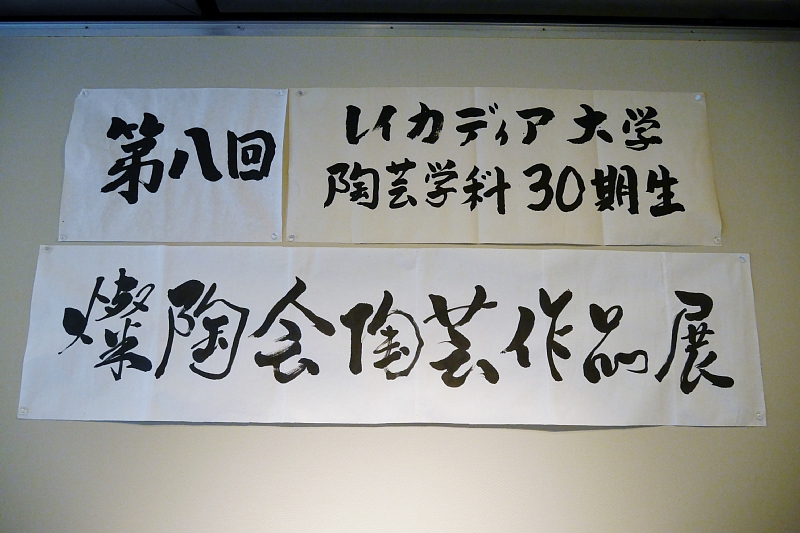 第八回
レイカディア大学
陶芸学科30期生
燦陶会陶芸作品展